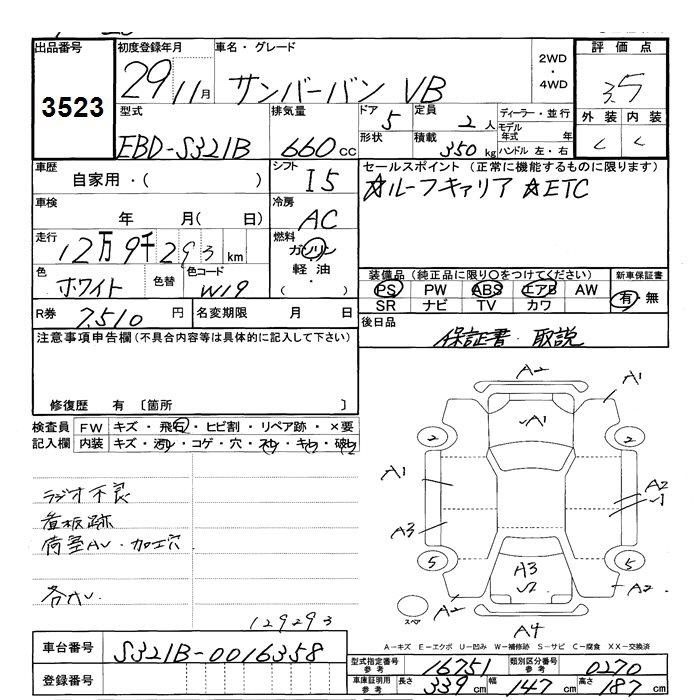 出品番号 初度登録年月 車名・グレード 2WD・4WD 評価点
3523 29 11月 サンバーバン VB 3.5
型式 排気量 ドア 5 定員 2人 ディーラー・並行 外装 内装
EBD-S321B 660cc 形状 積載 350kg モデル年式 年 ハンドル 左・右 C C
車歴 シフト セールスポイント (正常に機能するものに限ります)
自家用・( ) I5 ☆ルーフキァリア ☆ETC
車検 年 月( 日) 冷房 AC
走行 12万9千293km 燃料 ガソリン 軽油 ( ・ )
色 ホワイト 色替 色コード W19
装備品 (純正品に限り○をつけてください) 新車保証書
PS PW ABS エアB AW 有・無
SR ナビ TV カワ
R券 7,510円 名変期限 月 日
後日品 保証書・取説
注意事項申告欄 (不具合内容等は具体的に記入して下さい)
修復歴 有 〔箇所 〕
検査員 FW キズ・飛石・ヒビ割・リペア跡・×要
記入欄 内装 キズ・汚レ・コゲ・穴・スレ・キレ・破レ
ラジオ不良
看板跡
荷室AU・加工穴
各AU
129293
A2
A1
A1
2
2
A1
A2
A3
A3
5
5
A2
A2
スペア
A4
A-キズ E-エクボ U-凹み W-補修跡 S-サビ C-腐食 XX-交換済
車台番号 S321B-0016358
登録番号
型式指定番号 参考 16751 類別区分番号 参考 0270
車庫証明用 参考 長さ 339cm 幅 147cm 高さ 187cm